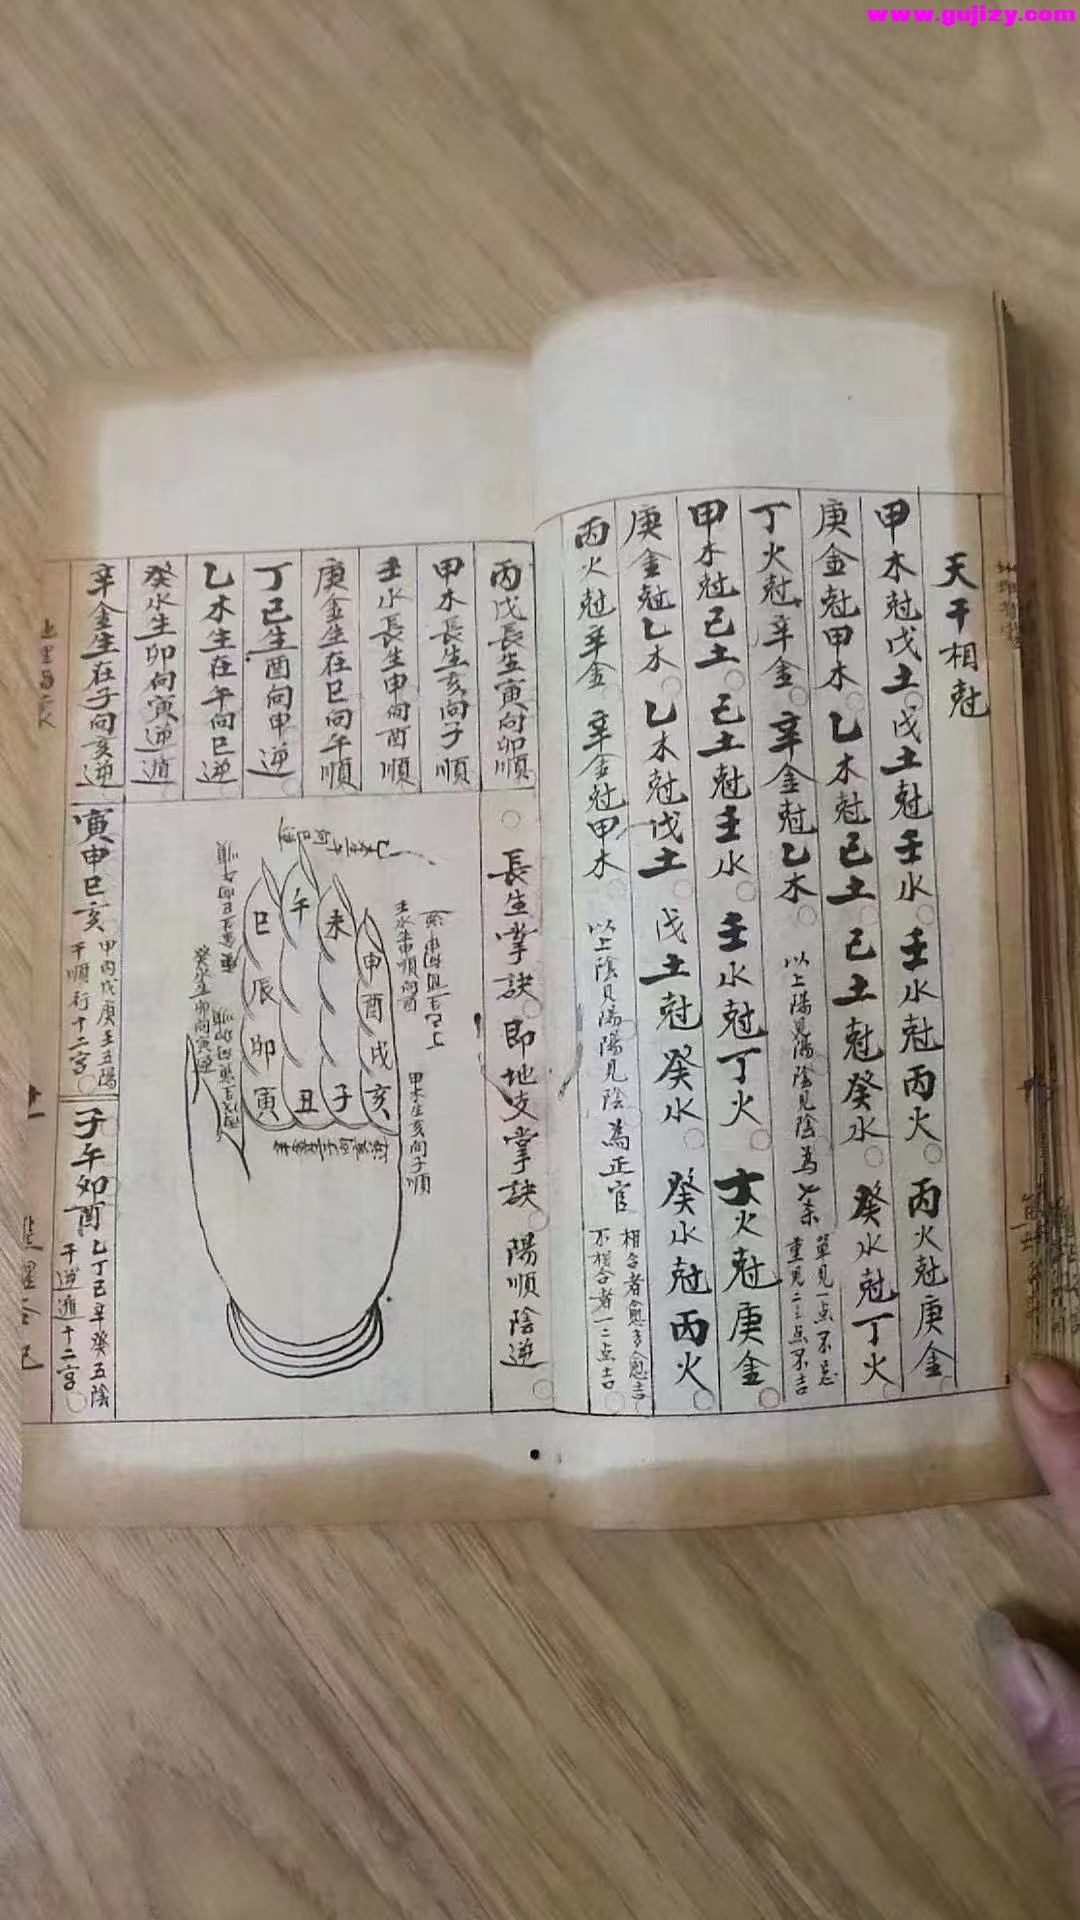 www.gujizy.com
天干相尅
甲木尅戊土 戊土尅壬水 壬水尅丙火 丙火尅庚金
庚金尅甲木 乙木尅己土 己土尅癸水 癸水尅丁火
丁火尅辛金 辛金尅乙木 以上陽見陽陰見陰為七杀 單見一点不忌
重見二三点不吉
甲木尅己土 己土尅壬水 壬水尅丁火 丁火尅庚金
庚金尅乙木 乙木尅戊土 戊土尅癸水 癸水尅丙火
丙火尅辛金 辛金尅甲木 以上陰見陽陽見陰為正官 相合者愈多愈吉
不相合者一二点吉
丙戊長生寅向卯順
甲木長生亥向子順
壬水長生申向酉順
庚金生在巳向午順
丁己生酉向申逆
乙木生在午向巳逆
癸水生卯向寅逆遁
辛金生在子向亥逆
長生掌訣即地支掌訣 陽順陰逆
巳 午 未 申
辰 酉
卯 戌
寅 丑 子 亥
壬水生申順向酉
甲木生亥向子順
癸水生卯向寅逆
寅申巳亥 甲丙戊庚壬五陽
干順行十二宮
子午卯酉 乙丁己辛癸五陰
干逆遁十二宮